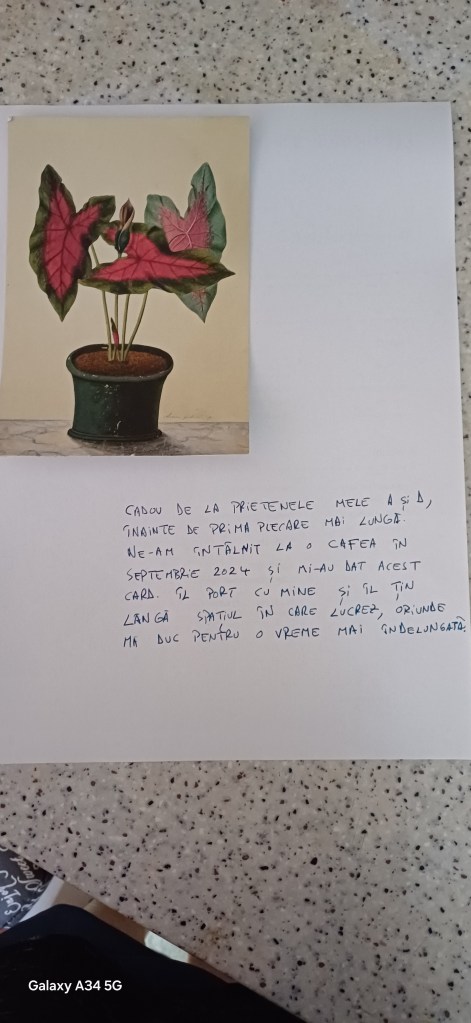 CADOU DE LA PRIETENELE MELE A ȘI D,
ÎNAINTE DE PRIMA PLECARE MAI LUNGĂ.
NE-AM ÎNTÂLNIT LA O CAFEA ÎN
SEPTEMBRIE 2024 ȘI MI-AU DAT ACEST
CARD. ÎL PORT CU MINE ȘI ÎL ȚIN
LÂNGĂ SPAȚIUL ÎN CARE LUCREZ, ORIUNDE
MĂ DUC PENTRU O VREME MAI ÎNDELUNGATĂ.
Galaxy A34 5G